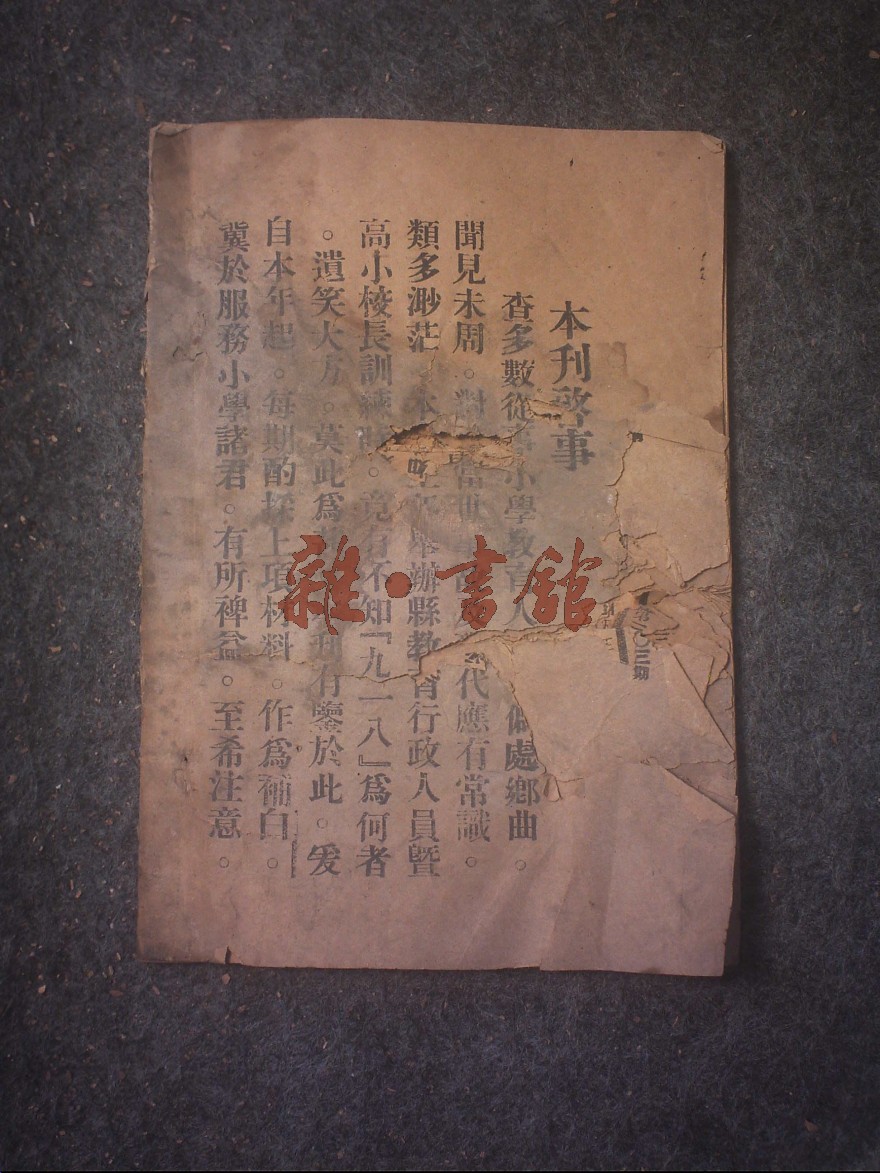 本刊啓事
查多數從事小學教育人 偏處鄉曲。
聞見未周。對 當世 代應有常識。
類多渺茫。本 舉辦縣教育行政人員曁
高小校長訓練 。竟有不知「九一八」爲何者
。遺笑大方。莫此爲 刊有鑒於此。爰
自本年起。每期酌採上項材料。作爲補白。
冀於服務小學諸君。有所裨益。至希注意。
三期
雜·書館